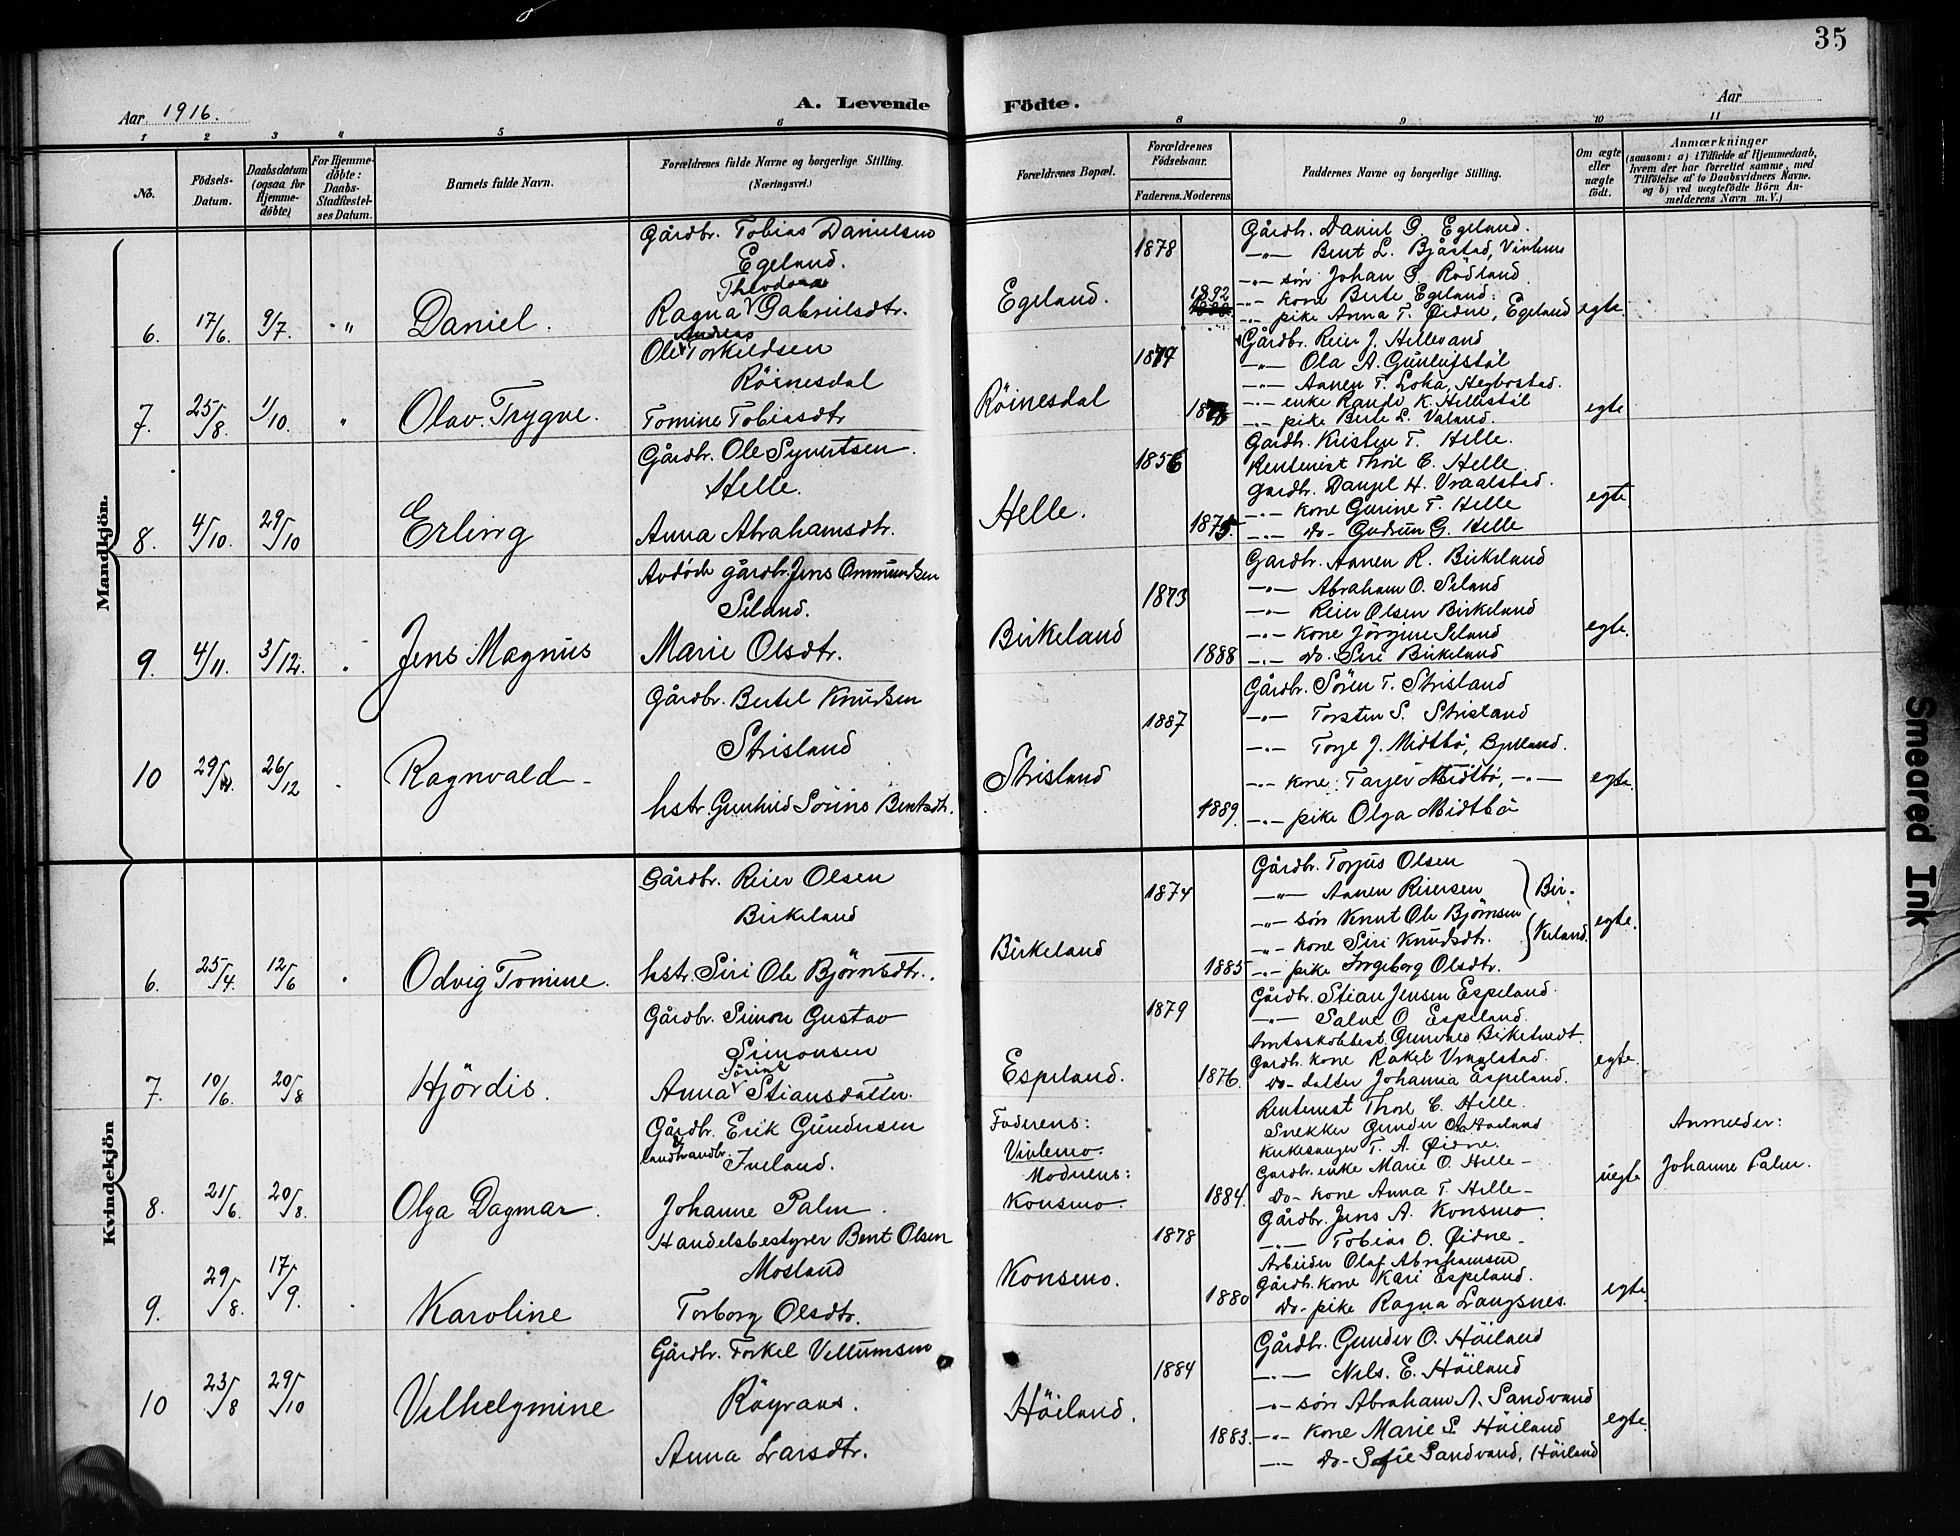 35
Aar 1916.
A. Levende Födte.
Aar
1 2 3 4 5 6 8 9 10 11
No.
Födsels-Datum.
Daabsdatum (ogsaa for Hjemme-döbte)
For Hjemme-döbte: Daabs-Stadfestel-ses Datum.
Barnets fulde Navn.
Forældrenes fulde Navne og borgerlige Stilling. (Næringsvei.)
Forældrenes Bopæl.
Forældrenes Födselsaar.
Faderens. Moderens.
Faddernes Navne og borgerlige Stilling.
Om ægte eller uægte födt.
Anmærkninger
(saasom: a) i Tilfælde af Hjemmedaab, hvem der har forrettet samme, med Tilföielse af to Daabsvidners Navne. og b) ved uægtefödte Börn An-melderens Navn m. V.)
Mandkjön.
6. 17/6. 9/7. Daniel.
Gårdbr. Tobias Danielsen
Egeland.
Theodora
Ragna Gabrielsdtr.
Egeland.
1878
1892
Gårdb. Daniel O. Egeland.
-"- Bent L. Bjåstad, Vivlemo
-"- sön Johan G. Rödland
-"- kone Berte Egeland.
-"- pike Anna T. Öidne, Egeland
egte.
7. 25/8. 1/10. Olav Trygve.
Andreas
Ole Torkildsen
Röinesdal
Tomine Tobiasdtr
Röinesdal
1874
Gårdbr. Reier J. Hellesand
-"- Ola A. Gunlufstöl
-"- Aanen T. Loka, Hegbostad.
-"- enke Randi K. Hellestöl
-"- pike Berte L. Valand.
egte
8. 4/10. 29/10 Erling
Gårdbr. Ole Syvertsen
Helle.
Anna Abrahamsdtr.
Helle.
1856
1875.
Gårdb. Kristen T. Helle.
Rentenist Thore C. Helle
Gardb. Danjel H. Vraalstad.
-"- kone Gurine T. Helle
-"- do- Gudrun G. Helle
egte
9. 4/11. 3/12. Jens Magnus
Avdöde gårdbr. Jens Ommundsen
Seland.
Marie Olsdtr.
Birkeland
1873
1888
Gardbr. Aanen R. Birkeland
-"- Abraham O. Seland
-"- Reier Olsen Birkeland
-"- kone Jörgine Seland
-"- do. Siri Birkeland
egte.
10 29/11. 26/12 Ragnvald
Gårdbr. Bertel Knudsen
Strisland
hstr. Gunhild Sörine Bentsdtr.
Strisland
1887
1889.
Gårdbr. Sören T. Strisland
-"- Torsten S. Strisland
-"- Torje J. Midtbö, Bjelland.
-"- kone: Tarjer Midtbö, -"-
-"- pike Olga Midtbö
egte.
Kvindekjön
6. 25/4. 12/6 Odvig Tomine.
Gårdbr. Reier Olsen
Birkeland
hstr. Siri Ole Björnsdtr.
Birkeland
1874
1885
Gårdbr. Torjus Olsen
-"- Aanen Reiersen } Bir-
-"- sön Knut Ole Björnsen
-"- kone Siri Knudsdtr. } keland.
-"- pike Ingeborg Olsdtr.
egte.
7. 10/6. 20/8 Hjördis.
Gårdbr. Simon Gustav
Simonsen
Sörine
Anna Stiansdatter.
Espeland.
1879
1876.
Gårdbr. Stian Jensen Espeland.
-"- Salve O. Espeland.
Amtsskolebest. Gunvald Birketvedt.
Gardb. kone Rakel Vraalstad.
do- datter Johanna Espeland.
egte.
8. 21/6 20/8. Olga Dagmar.
Gårdbr. Erik Gundersen
& landhandbr. Iveland.
Johanne Palm.
Faderens:
Vivlemo.
Moderens:
Konsmo.
1884.
Rentenist Thore C. Helle.
Snekker Gunder O. Hauland
Kirkesanger T. A. Öidne.
Gardb. enke Marie O. Helle-
do- kone Anna T. Helle-
uegte
Anmelder:
Johanne Palm.
9. 29/8. 17/9. Karoline
Handelsbestyrer Bent Olsen
Mosland
Torborg Olsdtr.
Konsmo.
1878
1880
Gårdbr. Jens A. Konsmo.
-"- Tobias O. Öidne-
Arbeider Olaf Abrahamsen
Gårdb. kone Kari Espeland.
do- pike Ragna Langsnes.
egte.
10 23/8 29/10 Vilhelgmine
Gårdbr. Torkel Vellumsen
Röyraas.
Anna Larsdtr.
Höiland.
1884
1883.
Gårdbr. Gunder O. Höiland
-"- Nils. E. Höiland
-"- sön Abraham A. Sandvand
-"- kone Marie S. Höiland
-"- do- Sofie Sandvand, Höiland
egte.
Smeared Ink